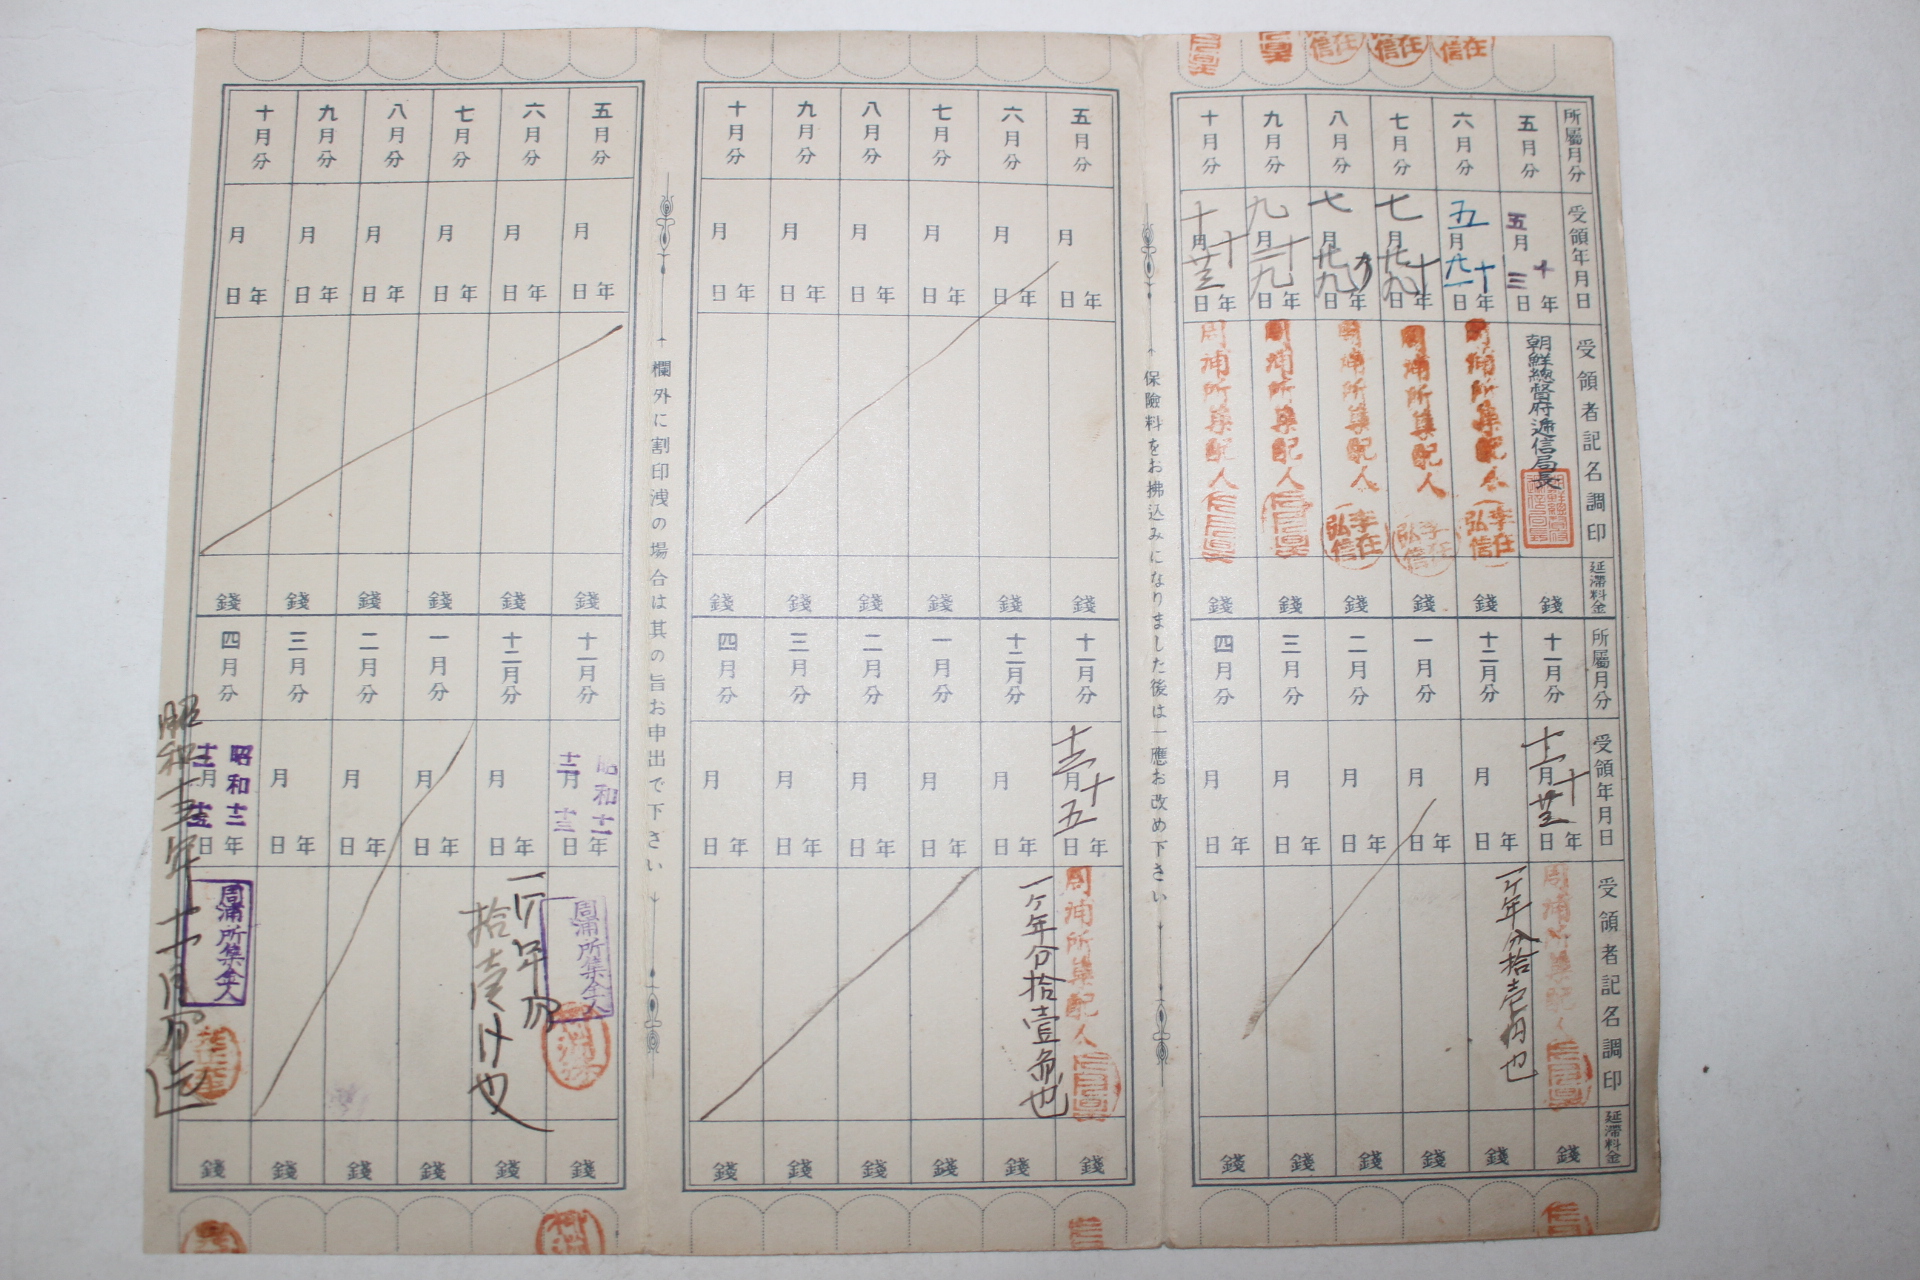 所屬月分
受領年月日
受領者記名調印
延滯料金
五月分
五月三日 十年
朝鮮總督府遞信局長
錢
六月分
五月 日 十年
周浦所集配人
李在弘信
錢
七月分
七月廿九日 十年
周浦所集配人
李在弘信
錢
八月分
七月廿九日 年
周浦所集配人
李在弘信
錢
九月分
九月 日 十年
周浦所集配人
錢
十月分
十月廿三日 十年
周浦所集配人
錢
所屬月分
受領年月日
受領者記名調印
延滯料金
十一月分
十二月 日 十年
周浦所集配人
錢
十二月分
月 日 年
一ケ年分拾壱円也
錢
一月分
月 日 年
錢
二月分
月 日 年
錢
三月分
月 日 年
錢
四月分
月 日 年
錢
保險料をお拂込みになりました後は一應お改め下さい
五月分
月 日 年
錢
六月分
月 日 年
錢
七月分
月 日 年
錢
八月分
月 日 年
錢
九月分
月 日 年
錢
十月分
月 日 年
錢
十一月分
月 五日 年
周浦所集配人
錢
十二月分
月 日 年
一ケ年分拾壹 也
錢
一月分
月 日 年
錢
二月分
月 日 年
錢
三月分
月 日 年
錢
四月分
月 日 年
錢
欄外に割印洩の場合は其の旨お申出で下さい
五月分
月 日 年
錢
六月分
月 日 年
錢
七月分
月 日 年
錢
八月分
月 日 年
錢
九月分
月 日 年
錢
十月分
月 日 年
錢
十一月分
昭和十一年 十二月十三日
周浦所集金人
錢
十二月分
月 日 年
一ケ年分
拾壹 也
錢
一月分
月 日 年
錢
二月分
月 日 年
錢
三月分
月 日 年
錢
四月分
昭和十二年 月 日
周浦所集金人
錢
昭和十三年十月分迄